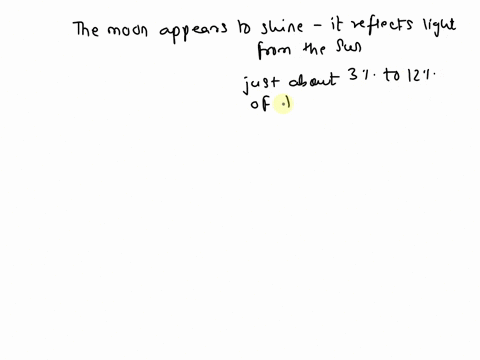 The moon appears to shine - it reflects light
from the Sun
just about 3% to 12%
of